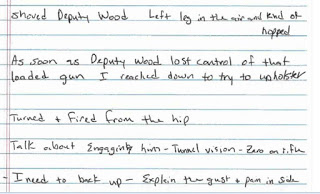 shoved Deputy Wood Left leg in the air and kind of
hopped
As soon as Deputy Wood lost control of that
loaded gun I reached down to try to unholster
Turned + fired from the hip
Talk about Engaging him - Tunnel vision - Zero on rifle
- I need to back up - Explain the gust + pain in side